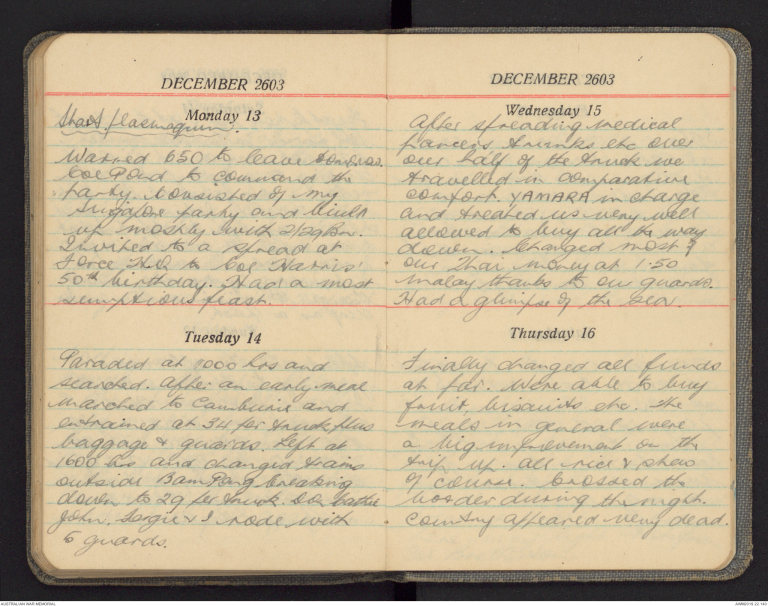 DECEMBER 2603
Monday 13
Start plasmoquin.
Warned 650 to leave tomorrow.
Col Pond to command the
party. Consisted of my
Singalore party and built
up mostly with 2/29 Bn.
Invited to a spread at
Force H.Q. to Col Harris'
50th birthday. Had a most
sumptious feast.
Tuesday 14
Paraded at 1000 hrs and
searched. After an early meal
marched to Camburie and
entrained at 34 per truck plus
baggage & guards. Left at
1600 hrs and changed trains
outside Bam Pong breaking
down to 29 per truck.
John. & I rode with
6 guards.
DECEMBER 2603
Wednesday 15
After spreading medical
panniers trunks etc over
our half of the truck we
travelled in comparative
comfort. YAMARA in charge
and treated us very well
allowed to buy all the way
down. Changed most of
our Thai money at 1.50
malay thanks to our guards.
Had a glimpse of the sea.
Thursday 16
Finally changed all funds
at par. Were able to buy
fruit, biscuits etc. The
meals in general were
a big improvement on the
trip up. All rice & stew
of course. Crossed the
border during the night.
Country appeared very dead.
AUSTRALIAN WAR MEMORIAL